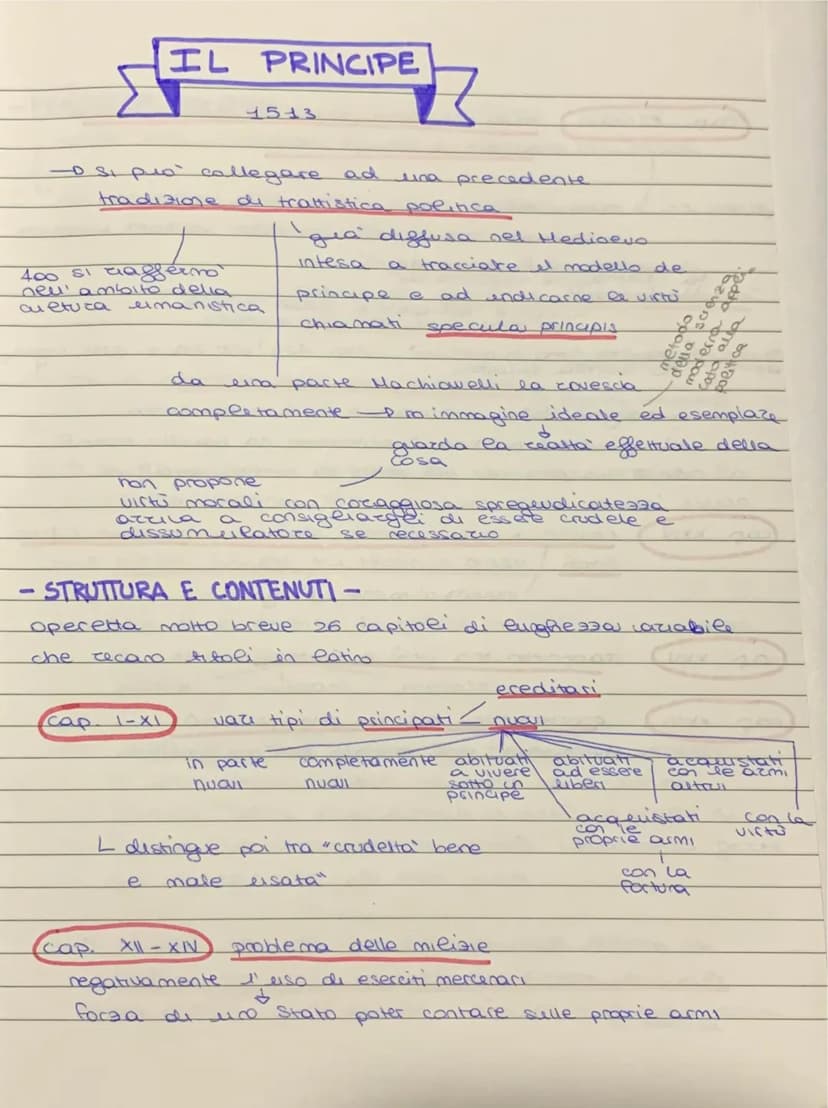 IL PRINCIPE
1513
→ si può collegare ad una precedente
tradizione di trattistica politica
già diffusa nel Medioevo
intesa a tracciare il modello de
principe e ad indicarne le virtù
chiamati specula principis
400 si riaffermò
nell'ambito della
cultura umanistica
metodo
della scienza
moderna appli
cato alla
politica
da una parte Machiavelli la rovescia
completamente → no immagine ideale ed esemplare
guarda la realtà effettuale della
cosa
non propone
virtù morali con coraggiosa spregiudicatezza
arriva a consigliargli di essere crudele e
dissimulatore se necessario
- STRUTTURA E CONTENUTI -
operetta molto breve 26 capitoli di lunghezza variabile
che recano titoli in latino
ereditari
cap. I-XI vari tipi di principati nuovi
in parte
nuovi
completamente
nuovi
abituati
a vivere
sotto un
principe
abituati
ad essere
liberi
acquistati
con le armi
altrui
acquistati
con le
proprie armi
con la
virtù
con la
fortuna
distingue poi tra "crudeltà bene
e male usata"
cap. XII-XIV problema delle milizie
negativamente l'uso di eserciti mercenari
forza di uno Stato poter contare sulle proprie armi